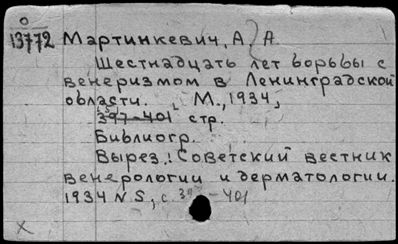 О
13772 Мартинкевич, А. А.
Шестнадцать лет борьбы с
венеризмом в Ленинградской
области. М., 1934,
397-401 стр.
Библиогр.
Вырез.: Советский вестник
венерологии и дерматологии.
1934 N 5, с. 397-401